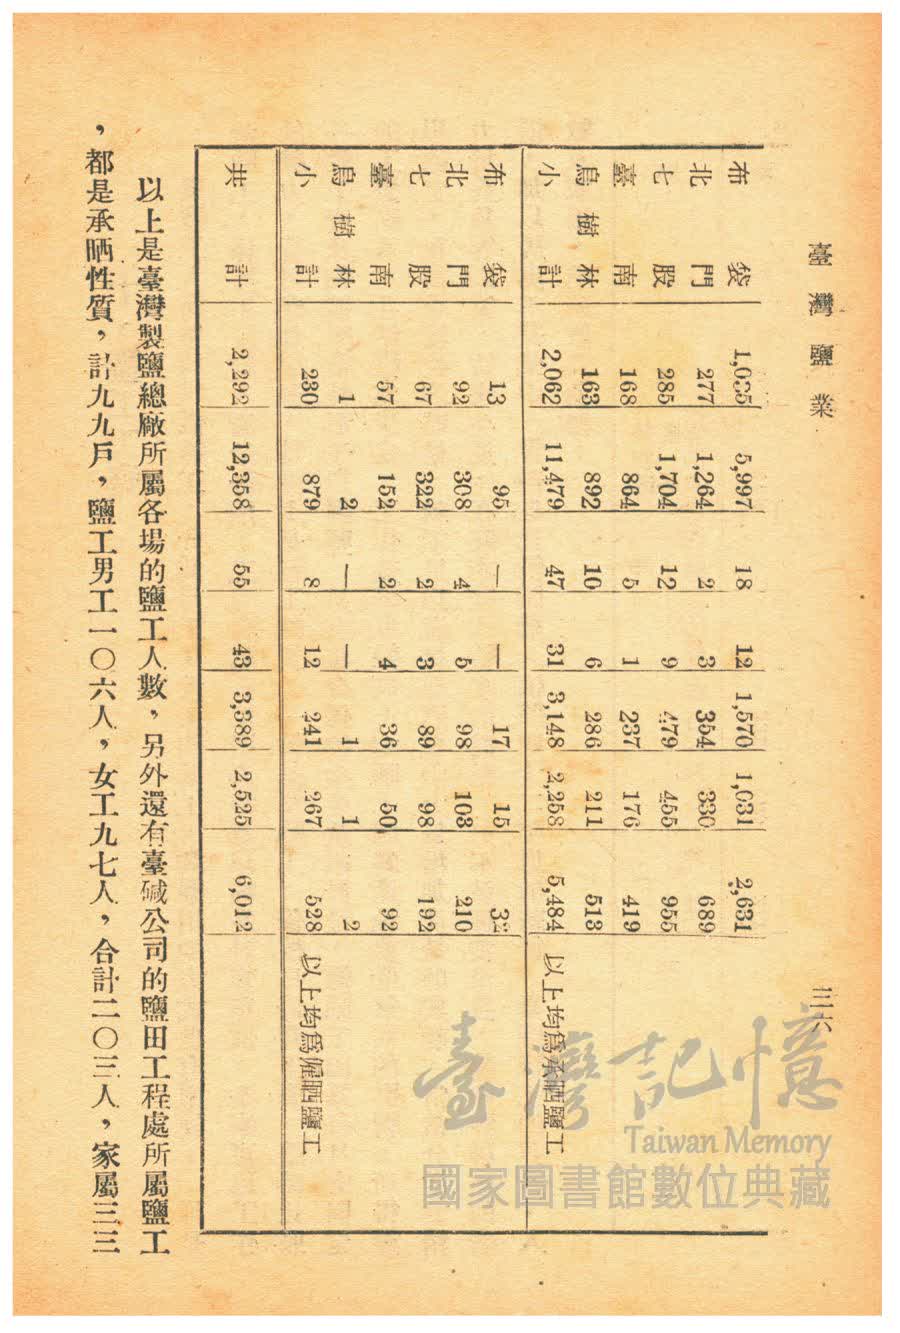 臺灣鹽業
布袋 1,035 5,997 18 12 1,570 1,031 2,631
北門 277 1,264 2 3 354 330 689
七股 285 1,704 12 9 479 455 955
臺南 168 864 5 1 237 176 419
烏樹林 163 892 10 6 286 211 513
小計 2,062 11,479 47 31 3,148 2,258 5,484 以上均為承晒鹽工
布袋 13 95 — — 17 15 32
北門 92 308 4 5 98 103 210
七股 67 322 2 3 89 98 192
臺南 57 152 2 4 36 50 92
烏樹林 1 2 — — 1 1 2
小計 230 879 8 12 241 267 528 以上均為僱晒鹽工
共計 2,292 12,358 55 43 3,389 2,525 6,012
以上是臺灣製鹽總廠所屬各場的鹽工人數，另外還有臺碱公司的鹽田工程處所屬鹽工
，都是承晒性質，計九九戶，鹽工男工一〇六人，女工九七人，合計二〇三人，家屬三三
臺灣記憶
Taiwan Memory
國家圖書館數位典藏